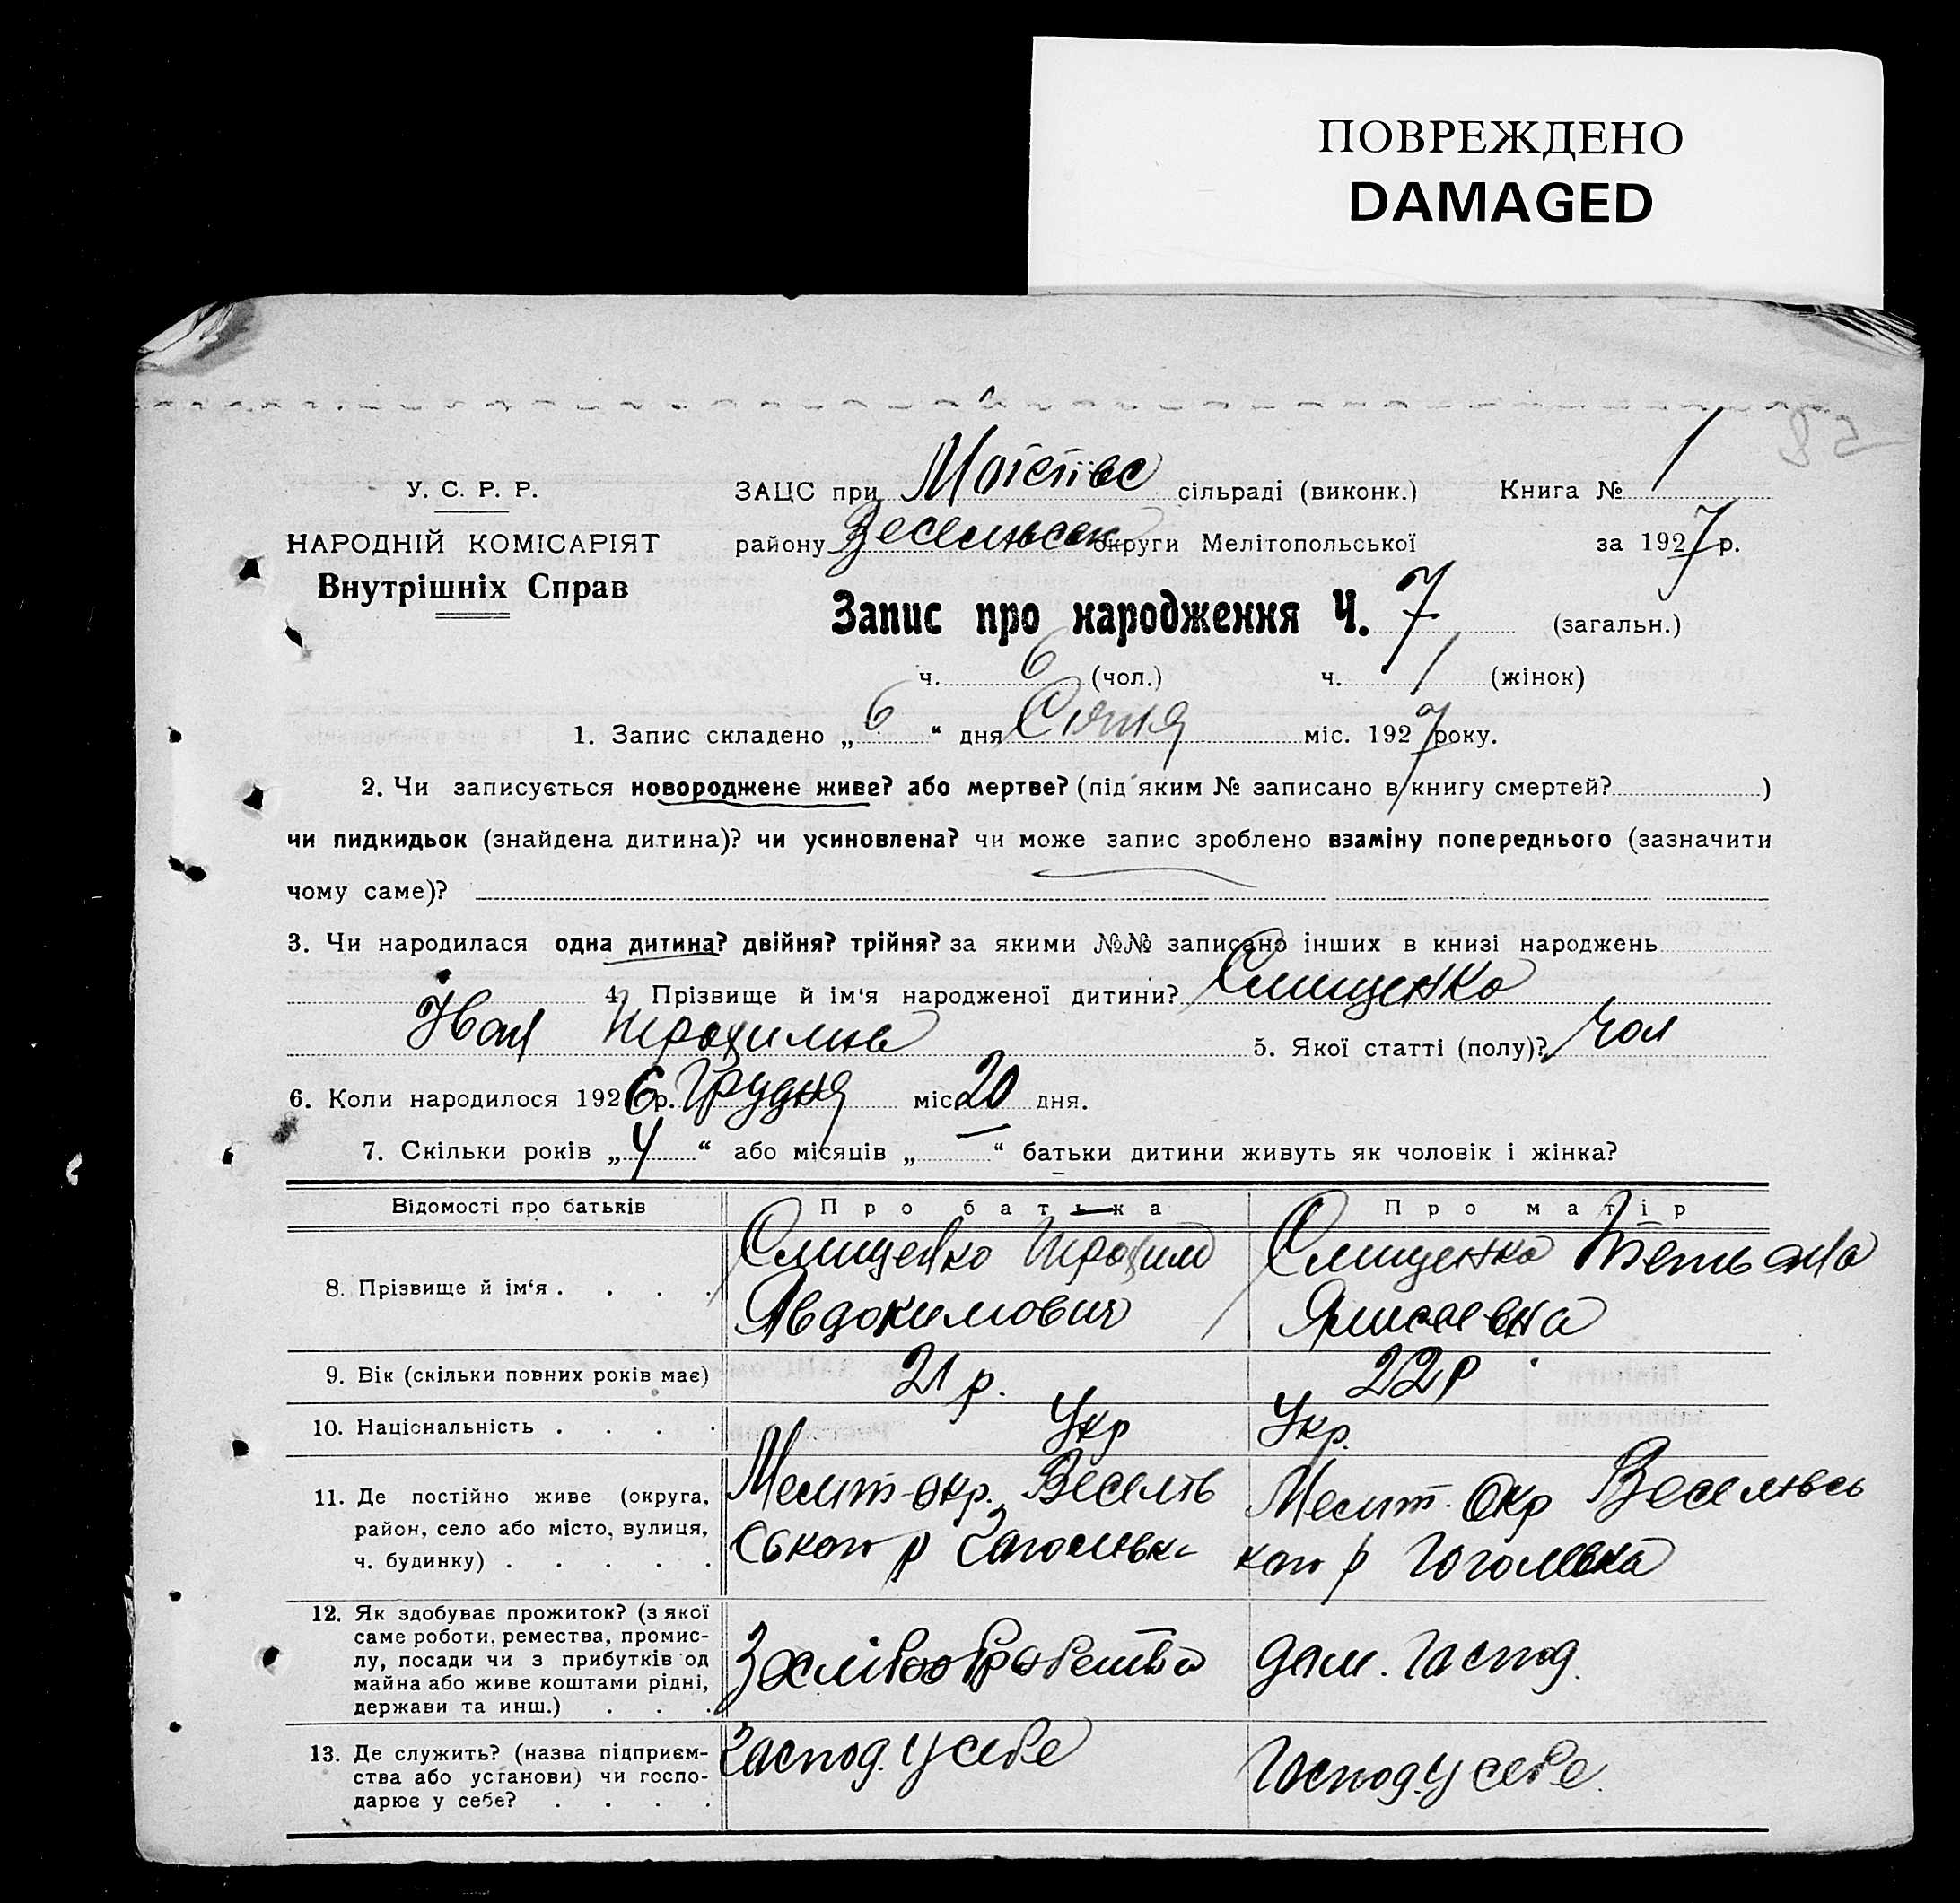 ПОВРЕЖДЕНО
DAMAGED
85
У. С. Р. Р.
НАРОДНІЙ КОМІСАРІЯТ
Внутрішніх Справ
ЗАЦС при сільраді (виконк.) Книга № 1
району Веселівськ округи Мелітопольської за 1927 р.
Запис про народження Ч. 7 (загальн.)
ч. 6 (чол.) ч. / (жінок)
1. Запис складено „6“ дня Січня міс. 1927 року.
2. Чи записується новороджене живе? або мертве? (під яким № записано в книгу смертей? )
чи пидкидьок (знайдена дитина)? чи усиновлена? чи може запис зроблено взаміну попереднього (зазначити
чому саме)?
3. Чи народилася одна дитина? двійня? трійня? за якими №№ записано інших в книзі народжень
4. Прізвище й ім‘я народженої дитини? Слищенко
Іван Трохимів 5. Якої статті (полу)? Чол
6. Коли народилося 1926 р. Грудня міс. 20 дня.
7. Скільки років „4“ або місяців „—“ батьки дитини живуть як чоловік і жінка?
Відомості про батьків Про батька Про матір
8. Прізвище й ім‘я . . . . Слищенко Трохим Слищенко Тетьяна
Авдокимович
9. Вік (скільки повних років має) 21 р. 22 р
10. Національність . . . . Укр Укр.
11. Де постійно живе (округа, Меліт-окр. Веселів Меліт. Окр Веселівсь
район, село або місто, вулиця, ського р Гоголівка кого р Гоголівка
ч. будинку) . . . . .
12. Як здобуває прожиток? (з якої
саме роботи, ремества, промис-
лу, посади чи з прибутків од дом. господ.
майна або живе коштами рідні,
держави та инш.) . . .
13. Де служить? (назва підприєм- Господ. у себе Господ. у себе.
ства або установи) чи госпо-
дарює у себе? . . . .